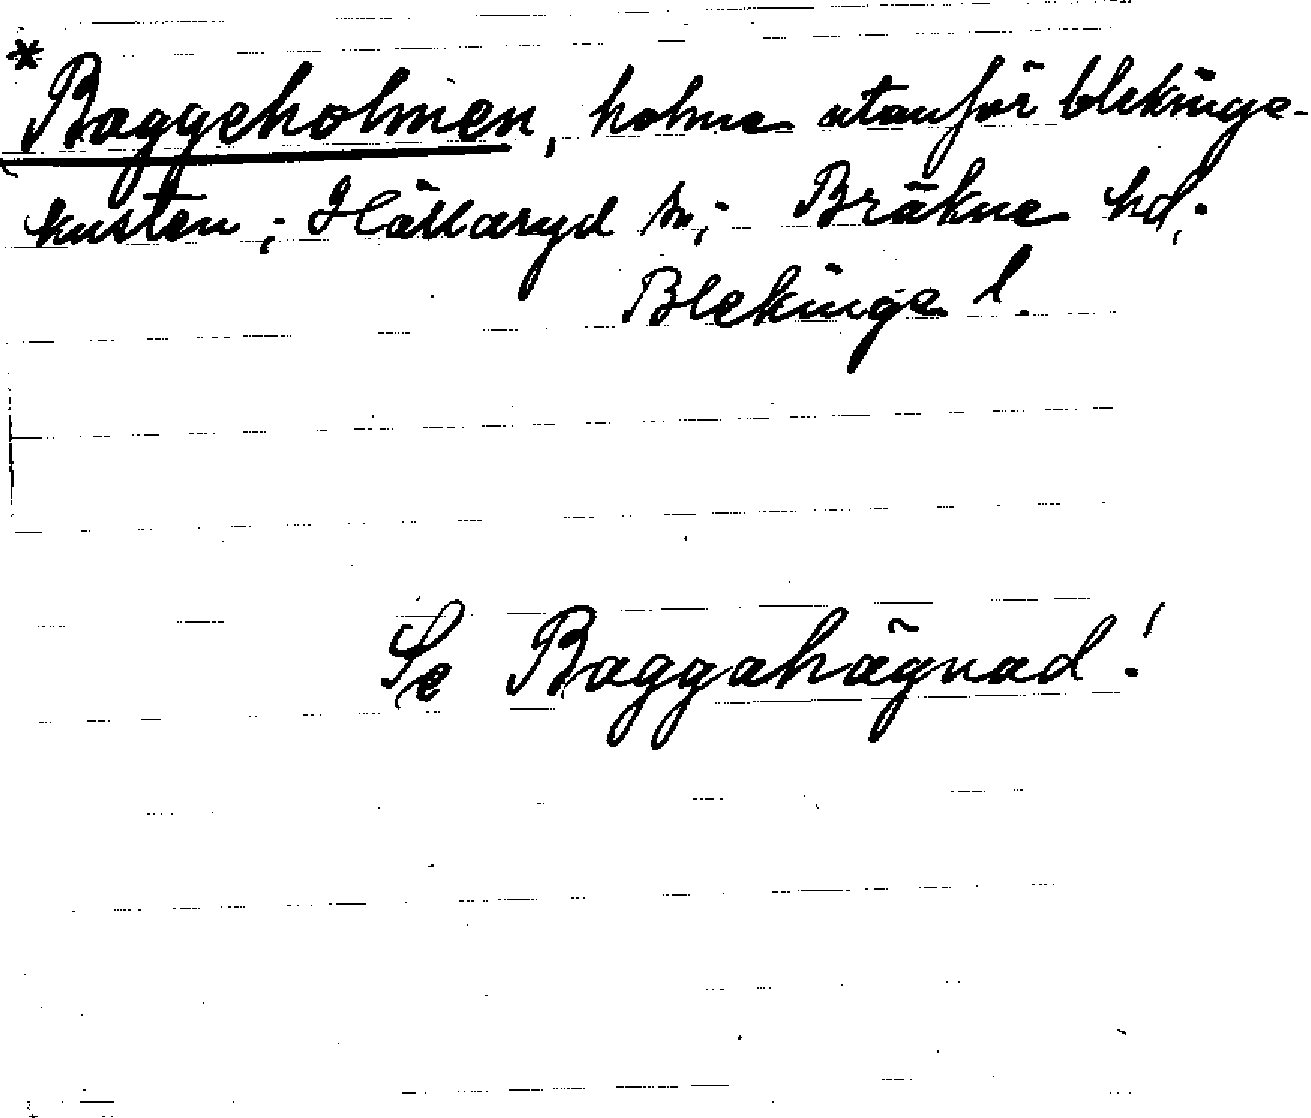 * Baggeholmen, holme utanför blekinge-
kusten; Hällaryd sn; Bräkne hd.
Blekinge l.
Se Baggahägnad!